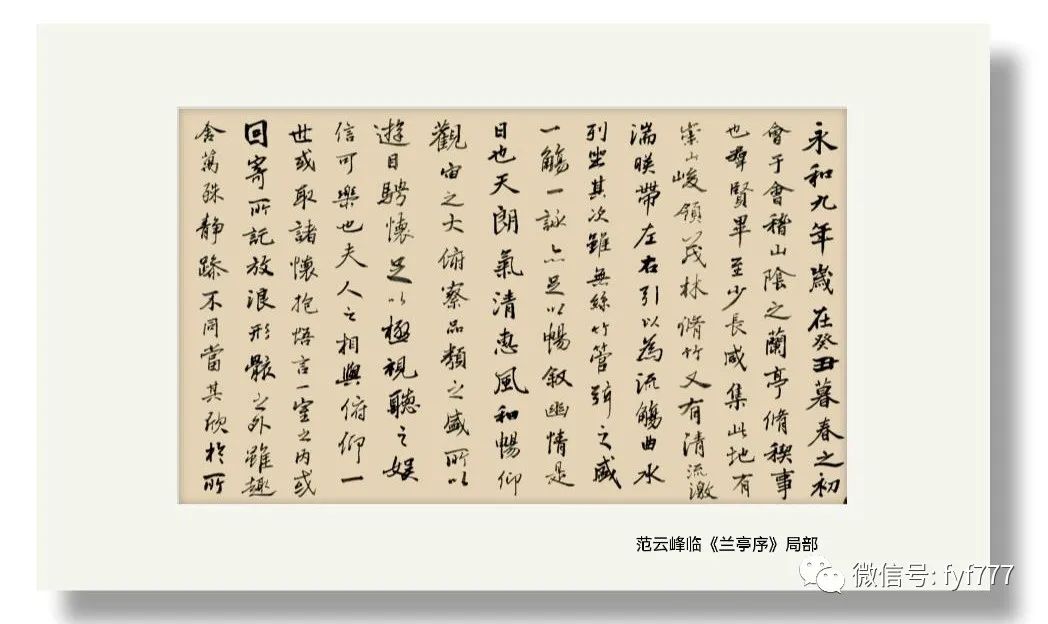 永和九年歲在癸丑暮春之初
會于會稽山陰之蘭亭脩稧事
也羣賢畢至少長咸集此地有
崇山峻領茂林脩竹又有清流激
湍暎帶左右引以為流觴曲水
列坐其次雖無絲竹管弦之盛
一觴一詠亦足以暢敘幽情是
日也天朗氣清惠風和暢仰
觀宙之大俯察品類之盛所以
遊目騁懷足以極視聽之娛
信可樂也夫人之相與俯仰一
世或取諸懷抱悟言一室之內或
回寄所託放浪形骸之外雖趣
舍萬殊静躁不同當其欣於所
范云峰临《兰亭序》局部
微信号: fyf777